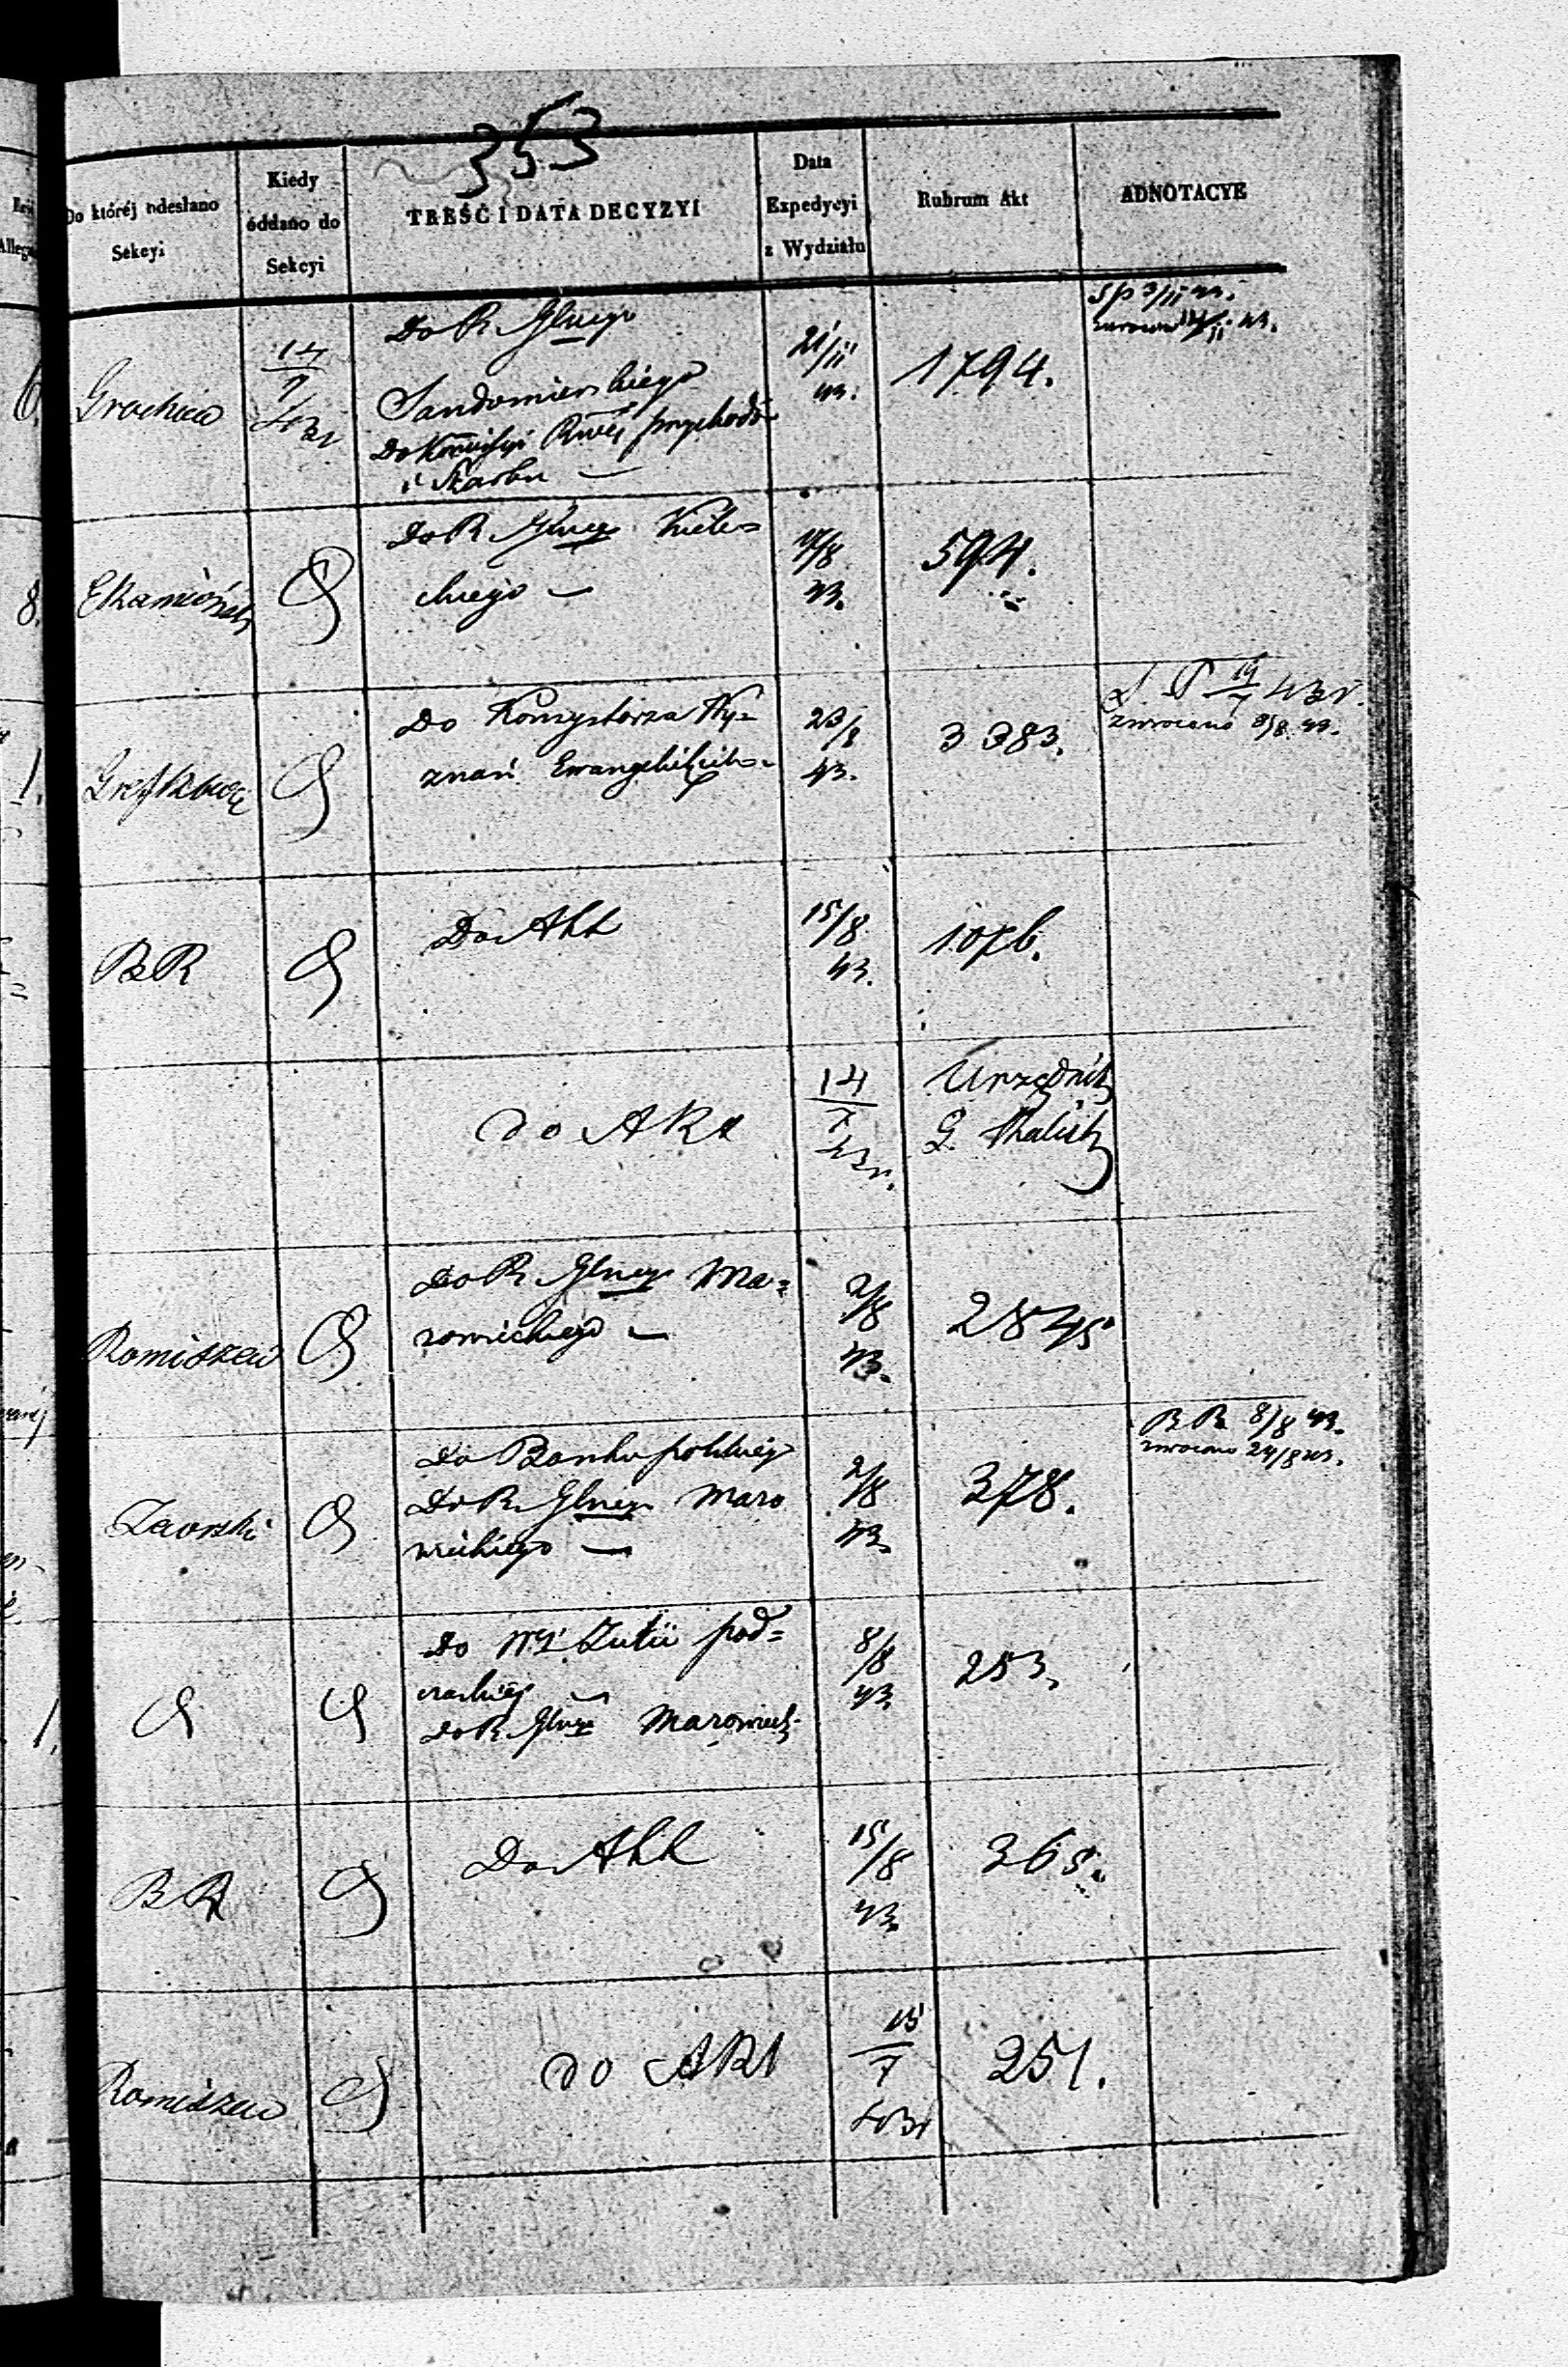 353
Do któréj odesłano
Sekcyi
Kiedy
oddano do
Sekcyi
TREŚĆ I DATA DECYZYI
Data
Expedycyi
z Wydziału
Rubrum Akt
ADNOTACYE
14
7
43r
Do R Głnego
Sandomierskiego
Do Kommissyi Rwéj Przychodów
i Skarbu —
21/11
43.
1794.
SP 3/11 43.
8.
Do R Głnego Kiele=
ckiego —
11/8
43.
594.
1.
Do Konsystorza Wy=
znań Ewangelickich
23/8
43.
3383.
S. P 19/7 43r.
zwrócono 8/8 43.
BR
Do Akt
15/8
43.
1076.
Do Akt
14
7
43r.
Urzędnik
G. Kalisk
Romiszew
Do R Głnego Ma=
zowieckiego —
2/8
43.
2845
Zaorski
Do Banku polskiego
Do R Głnego Mazo
wieckiego —
2/8
43.
378.
BR 8/8 43.
zwrócono 24/8 43.
1.
Do
pod=
Do R Głnego Mazowieck
8/8
43
253.
BR
Do Akt
15/8
43.
365.
Romiszew
Do Akt
15
7
43r
251.